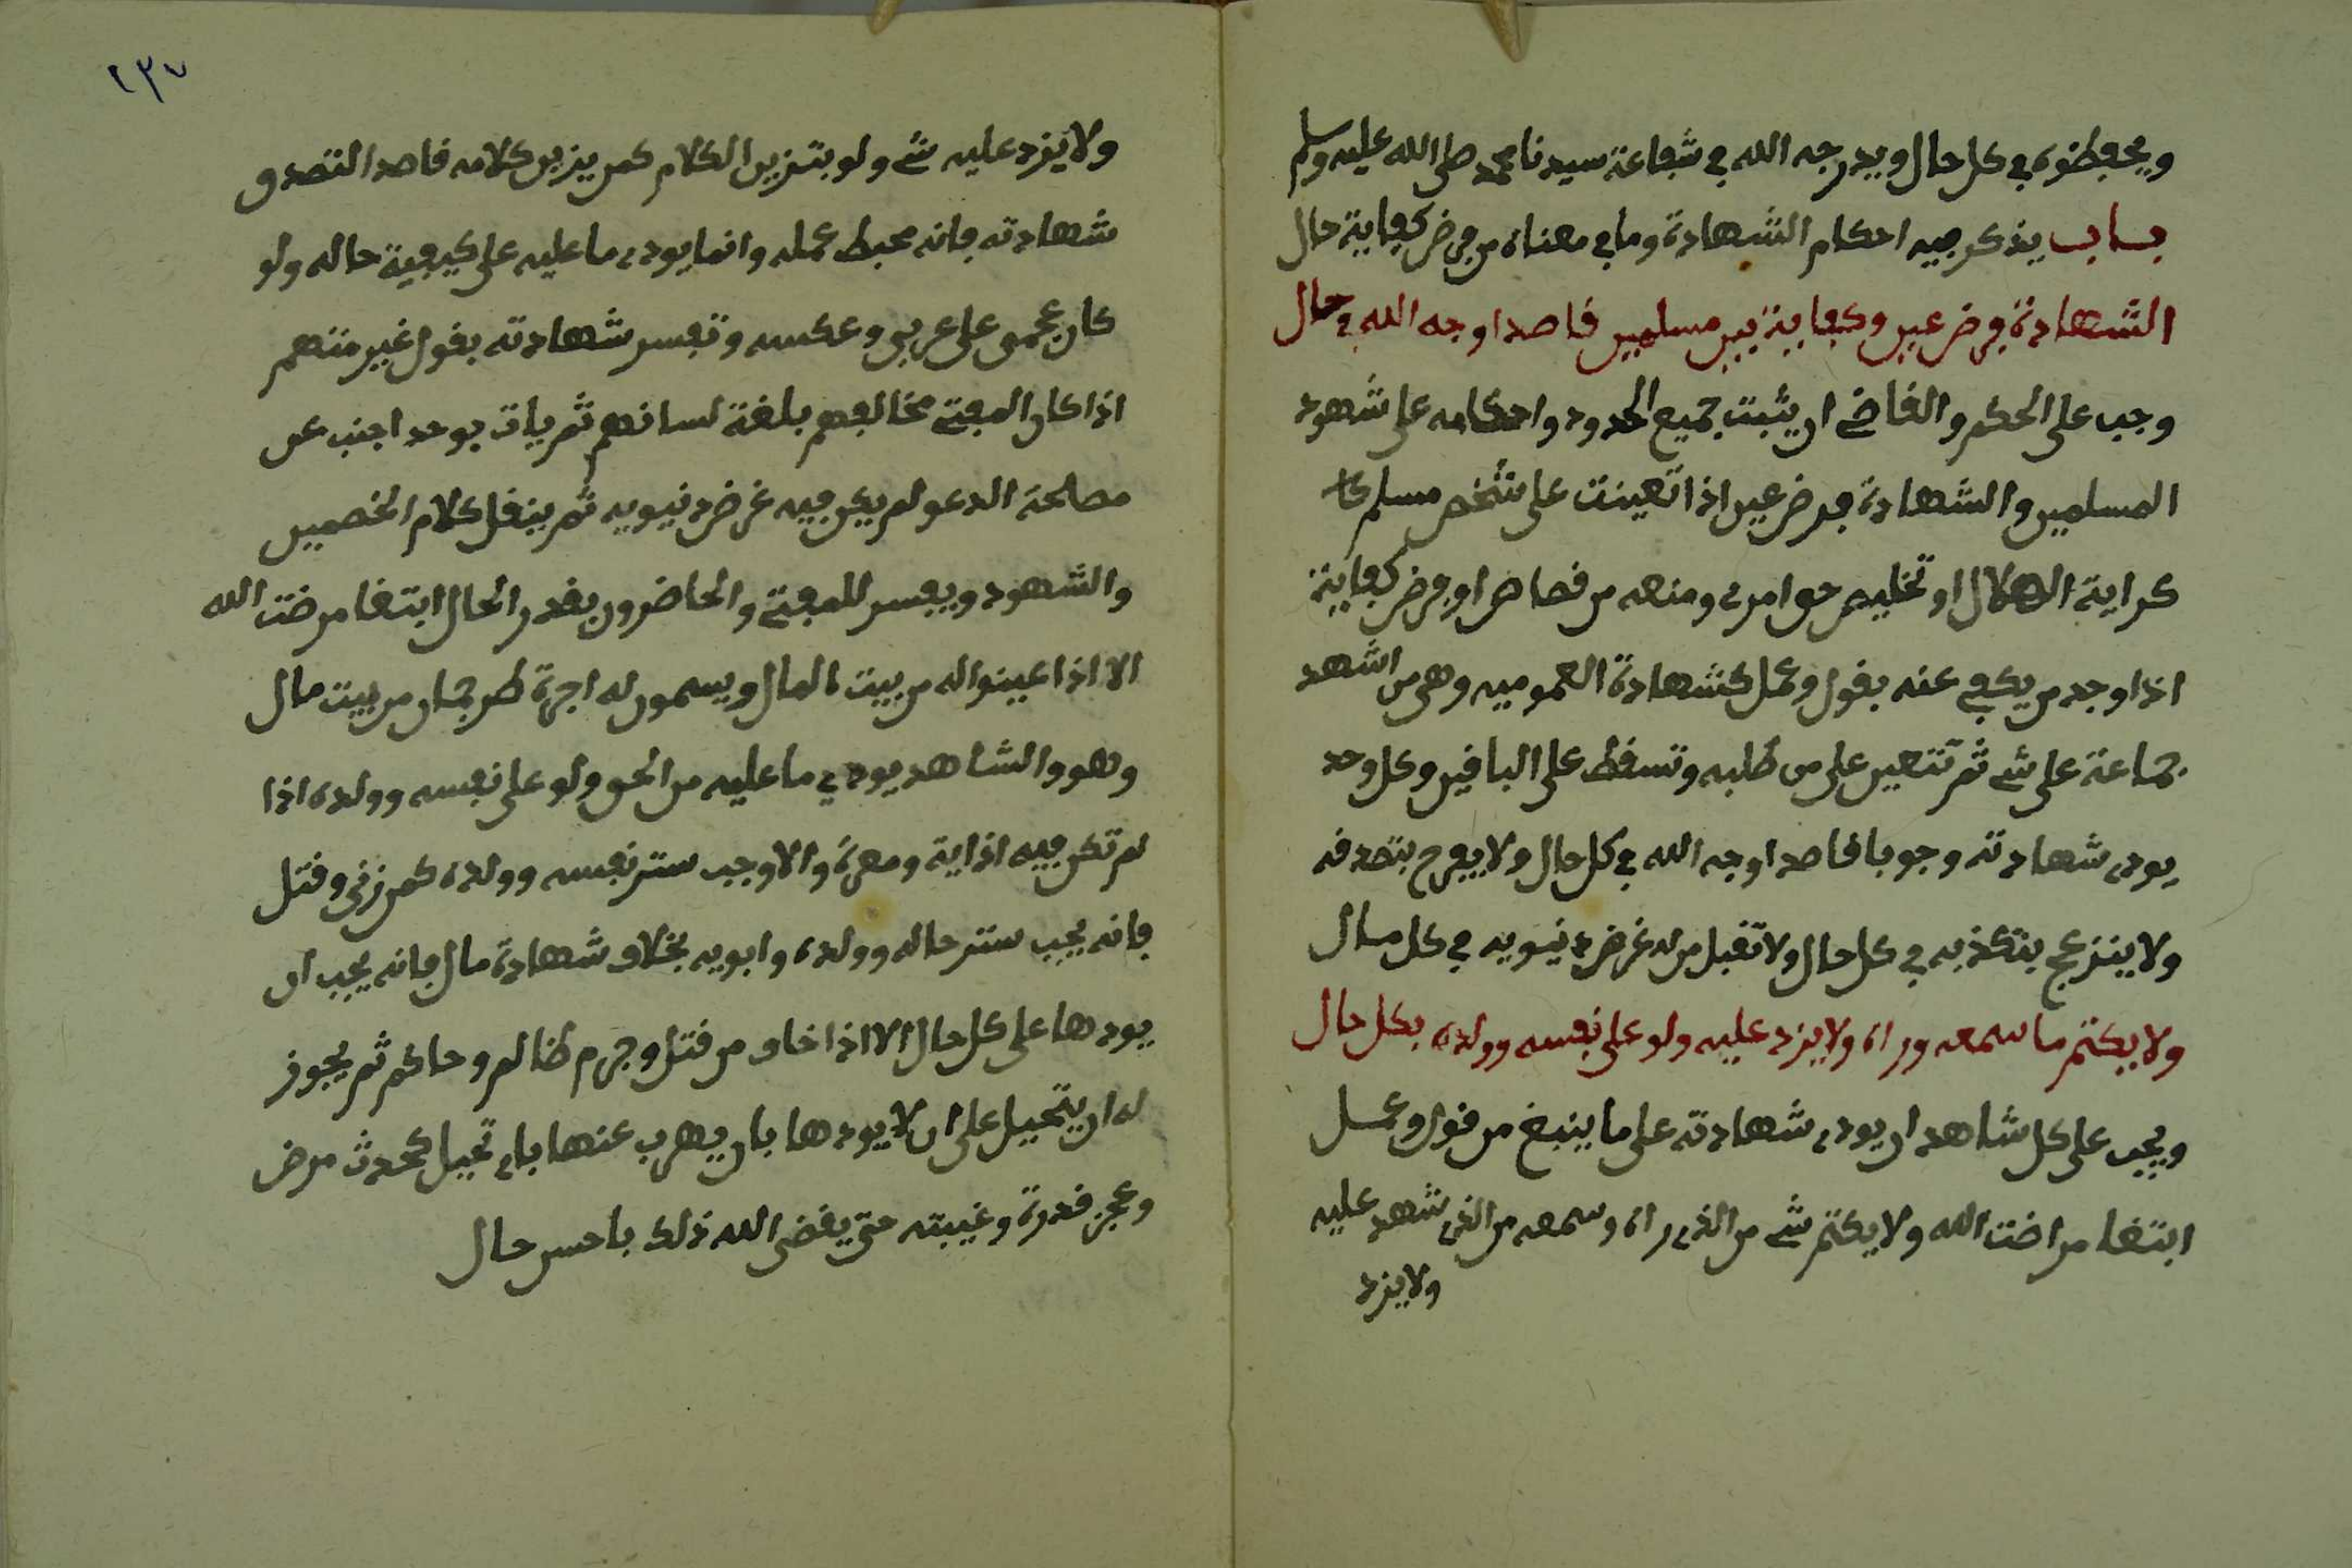 ويحفظوه في كل حال ويدرجه الله في شفاعة سيدنا محمد صلى الله عليه وسلم
باب يذكر فيه احكام الشهادة وما في معناه من فرض كفاية حال
الشهادة فرض عين وكفاية بين مسلمين قاصدا وجه الله في حال
وجب على الحكم والقاضي ان يثبت جميع الحدود واحكامه على شهود
المسلمين والشهادة فرض عين اذا تعينت على شخص مسلم
كراية الهلال او تخليص حق امرء ومنعه من قصاص او فرض كفاية
اذا وجد من يكفي عنه بقول وعمل كشهادة العموميه وهي من اشهد
جماعة على شي ثم تتعين على من طلبه وتسقط على الباقين وكل وحد
يودي شهادته وجوبا قاصدا وجه الله في كل حال ولا يفرح بتصدقه
ولا ينزعج بتكذبه في كل حال ولا تقبل من له غرض دنيويه في كل مال
ولا يكتم ما سمعه وراه ولا يزد عليه ولو على نفسه وولده بكل حال
ويجب على كل شاهد ان يودي شهادته على ما ينبغ من قول وعمل
ابتغا مراضت الله ولا يكتم شي من الذي راه وسمعه من الذي شهد عليه
ولا يزد
٢٣٧
ولا يزد عليه شي ولو بتزين الكلام كمن يزين كلامه قاصدا التصدق
شهادته فانه محبط عمله وانما يودي ما عليه على كيفية حاله ولو
كان عجمى على عربي وعكسه وتفسر شهادته بقول غير متهم
اذا كان المفتي مخالفهم بلغة لسانهم ثم يات بوحد اجنب عن
مصلحة الدعو لم يكن فيه غرض دنيويه ثم ينقل كلام الخصمين
والشهود ويفسر للمفتي والحاضرون بقدر الحال ابتغا مرضت الله
الا اذا عينوا له من بيت المال ويسمون له اجرة طرجمان من بيت مال
وهو والشاهد يودي ما عليه من الحق ولو على نفسه وولده اذا
لم تكن فيه اذاية ومعرة والا وجب ستر نفسه وولده كمن زنى وقتل
فانه يجب ستر حاله وولده وابويه بخلاف شهادة مال فانه يجب ان
يودها على كل حال الا اذا خاف من قتل وجرم ظالم وحاكم ثم يجوز
له ان يتحيل على ان لا يودها بان يهرب عنها باي تحيل كحدث مرض
وعجز قدرة وغيبته حتى يقضى الله ذلك باحسن حال